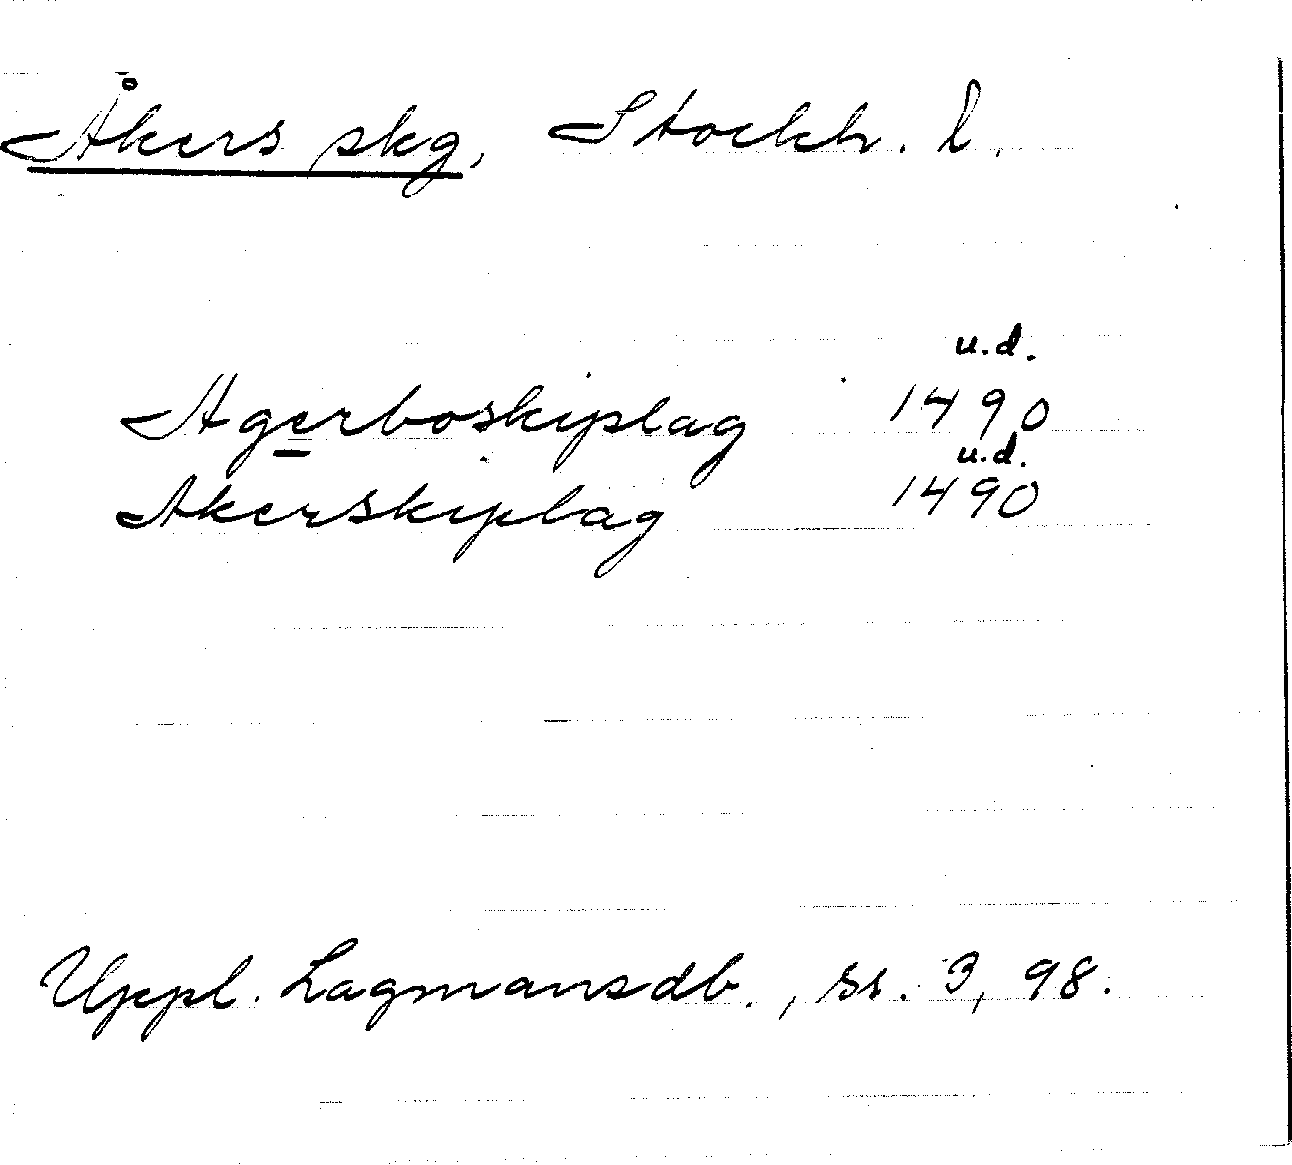 Åkers skg, Stockh. l.
u.d.
Agerboskiplag 1490
u.d.
Akerskiplag 1490
Uppl. Lagmansdb., ss. 3, 98.